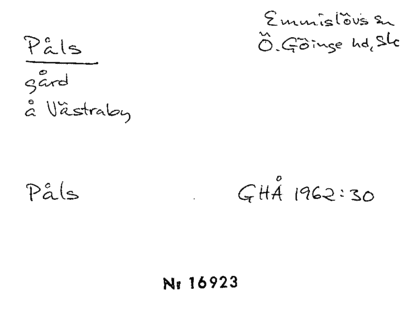 Påls
Emmislövs sn
Ö. Göinge hd, Sk
gård
å Västraby
Påls
GHÅ 1962:30
Nr 16923